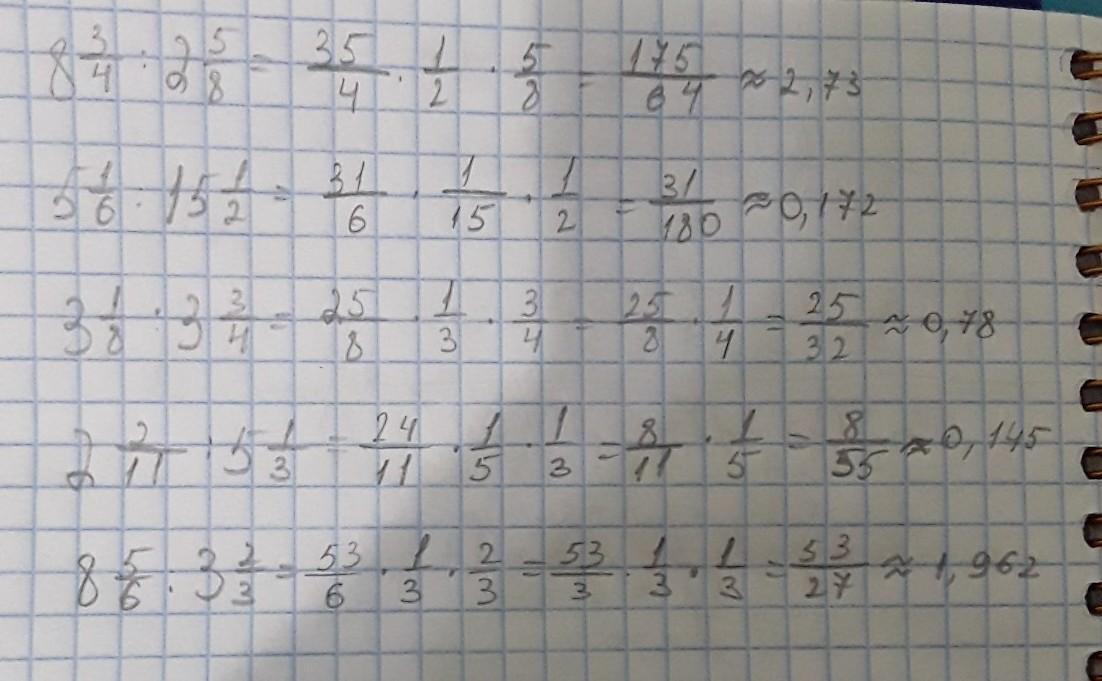 8 3/4 : 2 5/8 = 35/4 · 1/2 · 5/8 = 175/64 ≈ 2,73
5 1/6 : 15 1/2 = 31/6 · 1/15 · 1/2 = 31/180 ≈ 0,172
3 1/8 : 3 3/4 = 25/8 · 1/3 · 3/4 = 25/8 · 1/4 = 25/32 ≈ 0,78
2 2/11 : 5 1/3 = 24/11 · 1/5 · 1/3 = 8/11 · 1/5 = 8/55 ≈ 0,145
8 5/6 : 3 2/3 = 53/6 · 1/3 · 2/3 = 53/3 · 1/3 · 1/3 = 53/27 ≈ 1,962